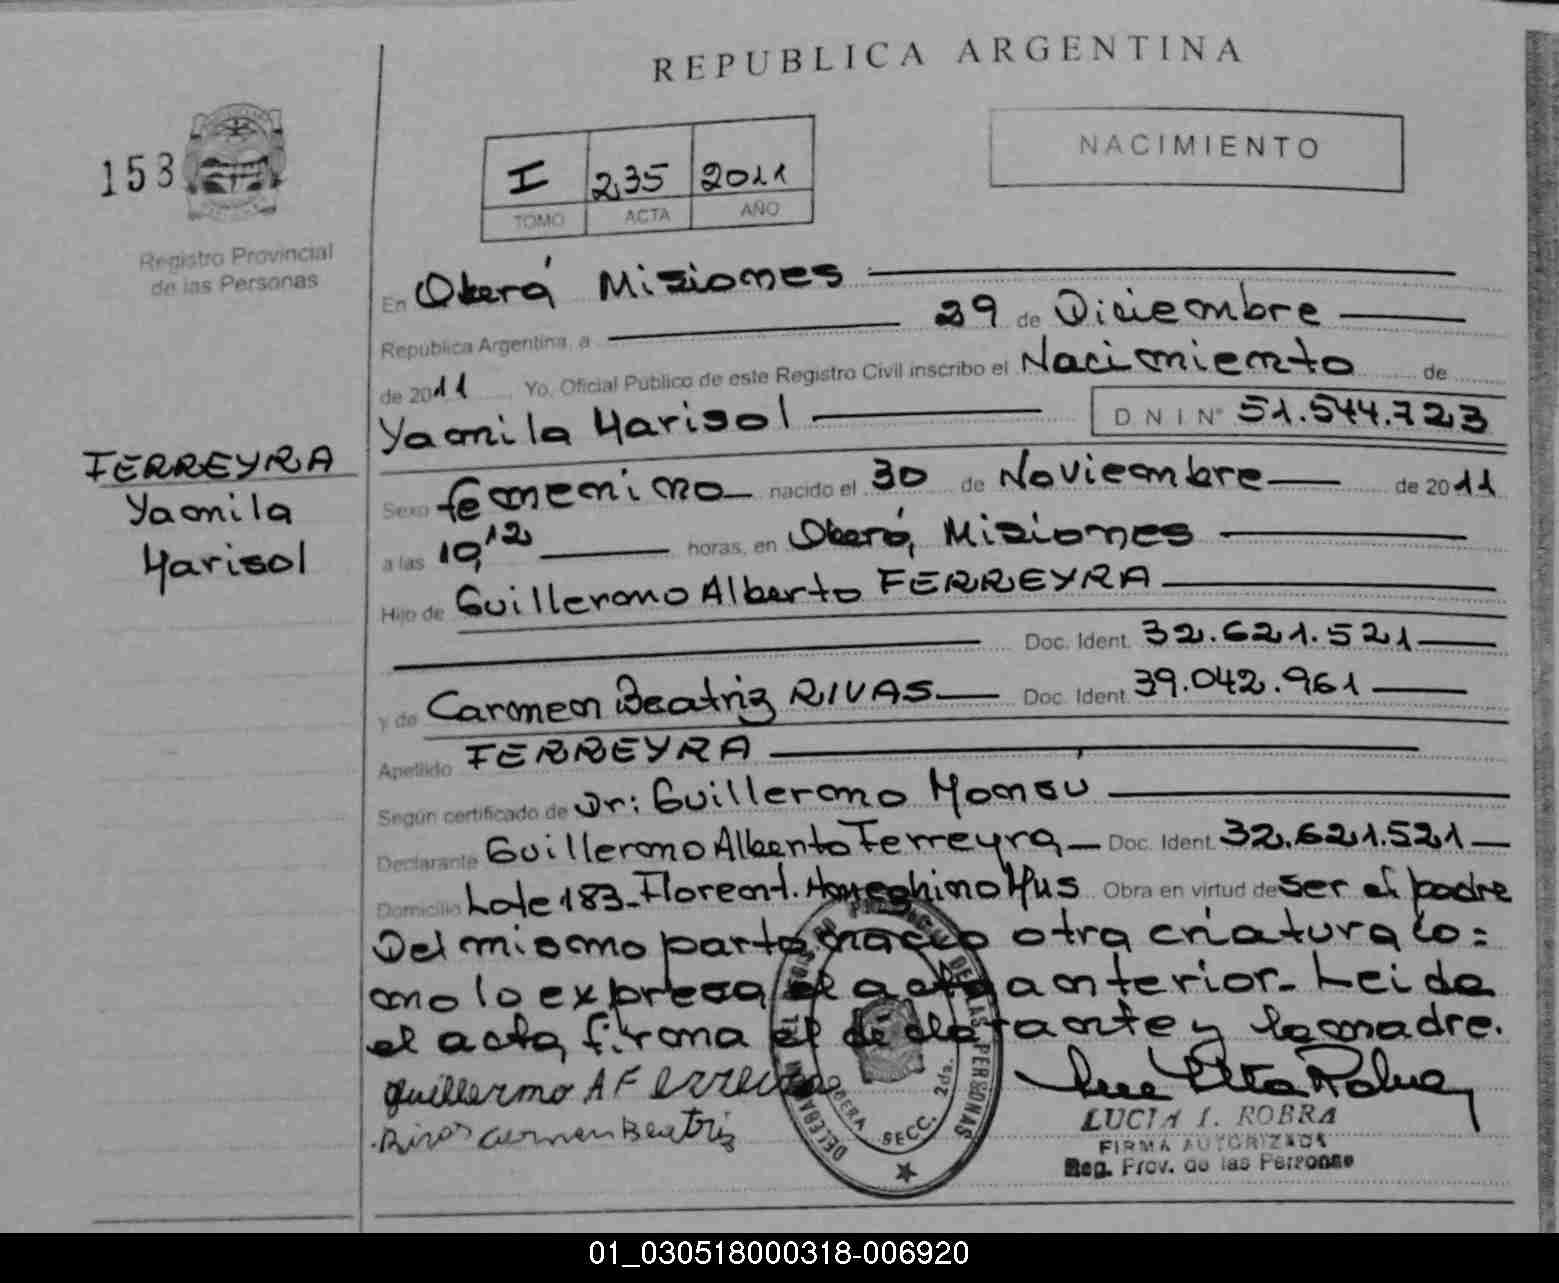 REPUBLICA ARGENTINA
153
Registro Provincial
de las Personas
I 235 2011
TOMO ACTA AÑO
NACIMIENTO
En Oberá Misiones
República Argentina, a 29 de Diciembre
de 2011 Yo, Oficial Público de este Registro Civil inscribo el Nacimiento de
Yamila Marisol DNI Nº 51.544.723
FERREYRA
Yamila
Marisol
Sexo femenino nacido el 30 de Noviembre de 2011
a las 10,12 horas, en Oberá, Misiones
Hijo de Guillermo Alberto FERREYRA
Doc. Ident. 32.621.521
y de Carmen Beatriz RIVAS Doc. Ident. 39.042.961
Apellido FERREYRA
Según certificado de Dr: Guillermo
Declarante Guillermo Alberto Ferreyra Doc. Ident. 32.621.521
Domicilio Lote 183 - Florent. Ameghino Mns Obra en virtud de ser el padre
Del mismo parto nacio otra criatura co=
mo lo expresa el acta anterior. Leida
el acta, firma el declarante y la madre.
Guillermo A Ferreyra
Carmen Beatriz
DELEGACION DEL REGISTRO PROVINCIAL DE LAS PERSONAS
OBERA SECC. 2da.
LUCIA I. ROBRA
FIRMA AUTORIZADA
Reg. Prov. de las Personas
01_030518000318-006920